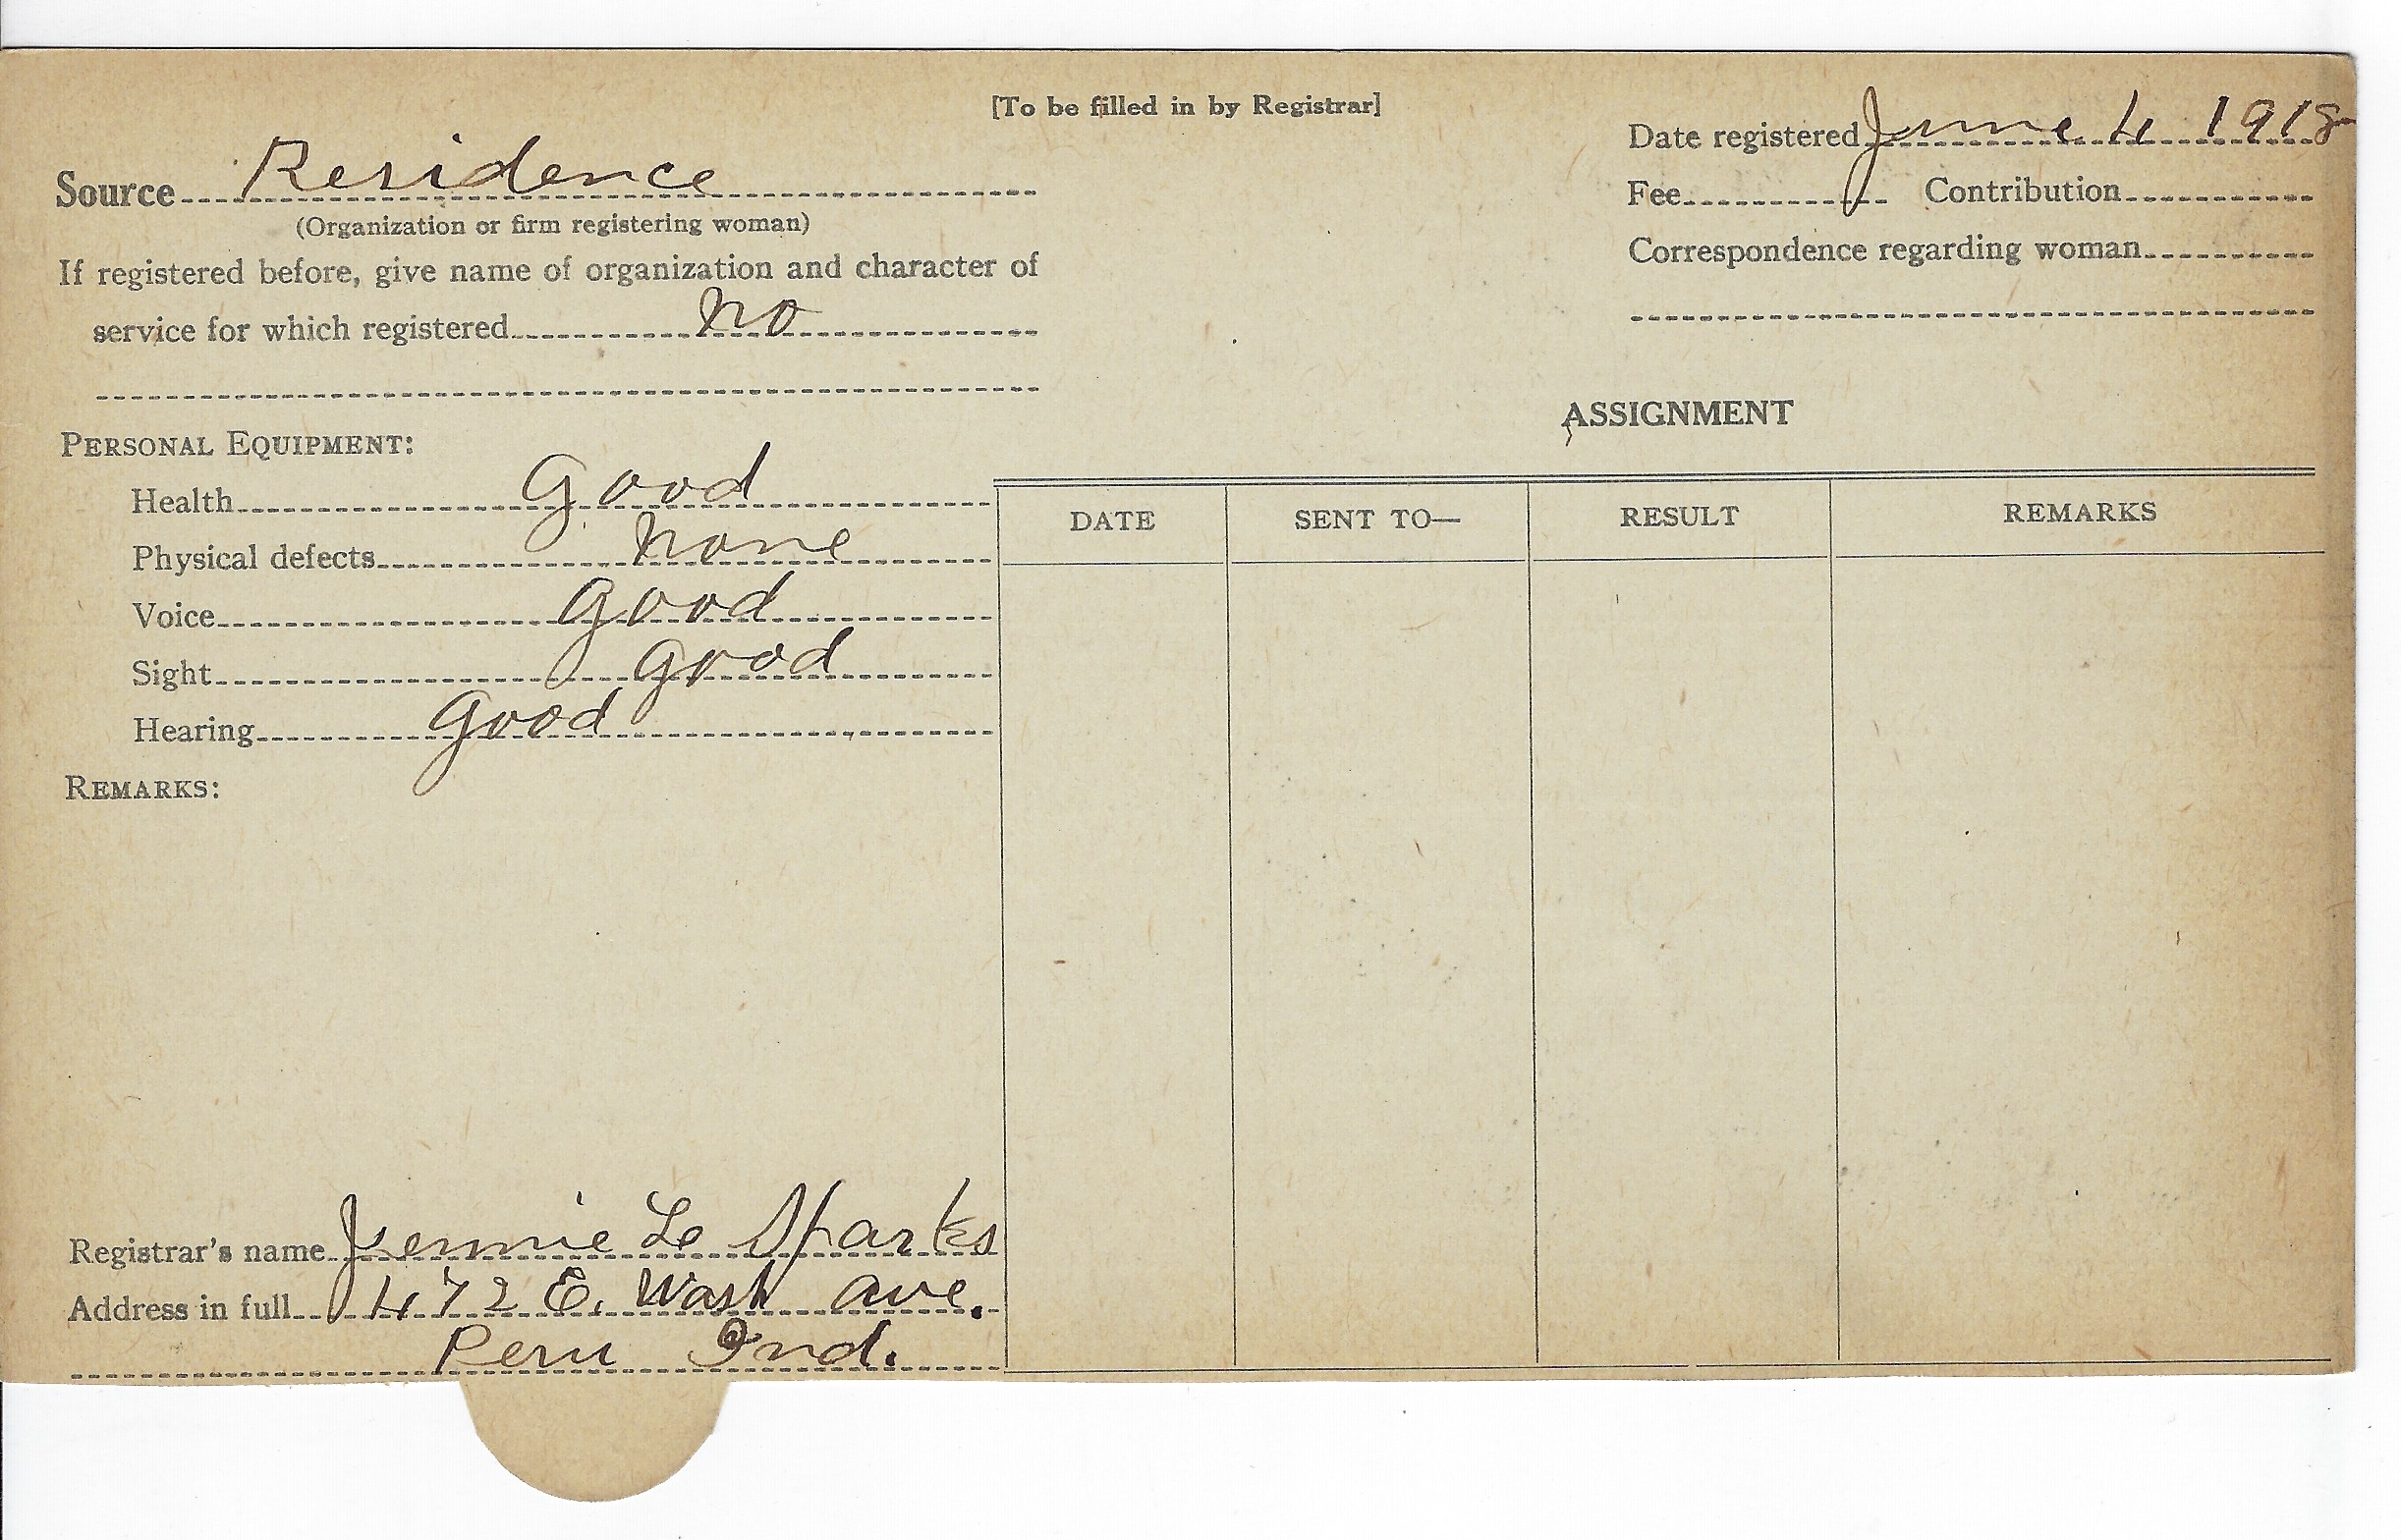 [To be filled in by Registrar]
Date registered June 4 1918
Source Residence
(Organization or firm registering woman)
Fee Contribution
If registered before, give name of organization and character of
service for which registered no
Correspondence regarding woman
PERSONAL EQUIPMENT:
Health Good
Physical defects none
Voice Good
Sight Good
Hearing Good
REMARKS:
Registrar's name Jennie Le Sparks
Address in full 472 E. Wash ave.
Peru Ind.
ASSIGNMENT
DATE SENT TO— RESULT REMARKS